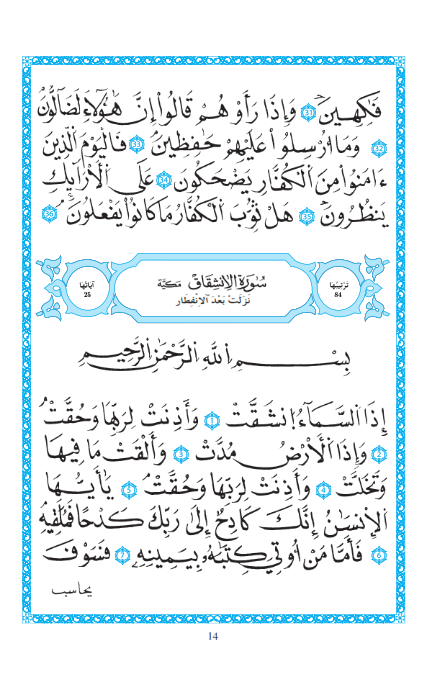 فَـٰكِهِينَ 31 وَإِذَا رَأَوْهُمْ قَالُوٓا۟ إِنَّ هَـٰٓؤُلَآءِ لَضَآلُّونَ
32 وَمَآ أُرْسِلُوا۟ عَلَيْهِمْ حَـٰفِظِينَ 33 فَالْيَوْمَ الَّذِينَ
ءَامَنُوا۟ مِنَ الْكُفَّارِ يَضْحَكُونَ 34 عَلَى الْأَرَآئِكِ
يَنظُرُونَ 35 هَلْ ثُوِّبَ الْكُفَّارُ مَا كَانُوا۟ يَفْعَلُونَ 36
تَرْتِيبُهَا 84
سُورَةُ الِانشِقَاقِ مَكِّيَّة
نَزَلَتْ بَعْدَ الِانفِطَارِ
آيَاتُهَا 25
بِسْمِ اللَّهِ الرَّحْمَـٰنِ الرَّحِيمِ
إِذَا السَّمَآءُ انشَقَّتْ 1 وَأَذِنَتْ لِرَبِّهَا وَحُقَّتْ
2 وَإِذَا الْأَرْضُ مُدَّتْ 3 وَأَلْقَتْ مَا فِيهَا
وَتَخَلَّتْ 4 وَأَذِنَتْ لِرَبِّهَا وَحُقَّتْ 5 يَـٰٓأَيُّهَا
الْإِنسَـٰنُ إِنَّكَ كَادِحٌ إِلَىٰ رَبِّكَ كَدْحًا فَمُلَـٰقِيهِ
6 فَأَمَّا مَنْ أُوتِيَ كِتَـٰبَهُۥ بِيَمِينِهِۦ 7 فَسَوْفَ
يحاسب
14